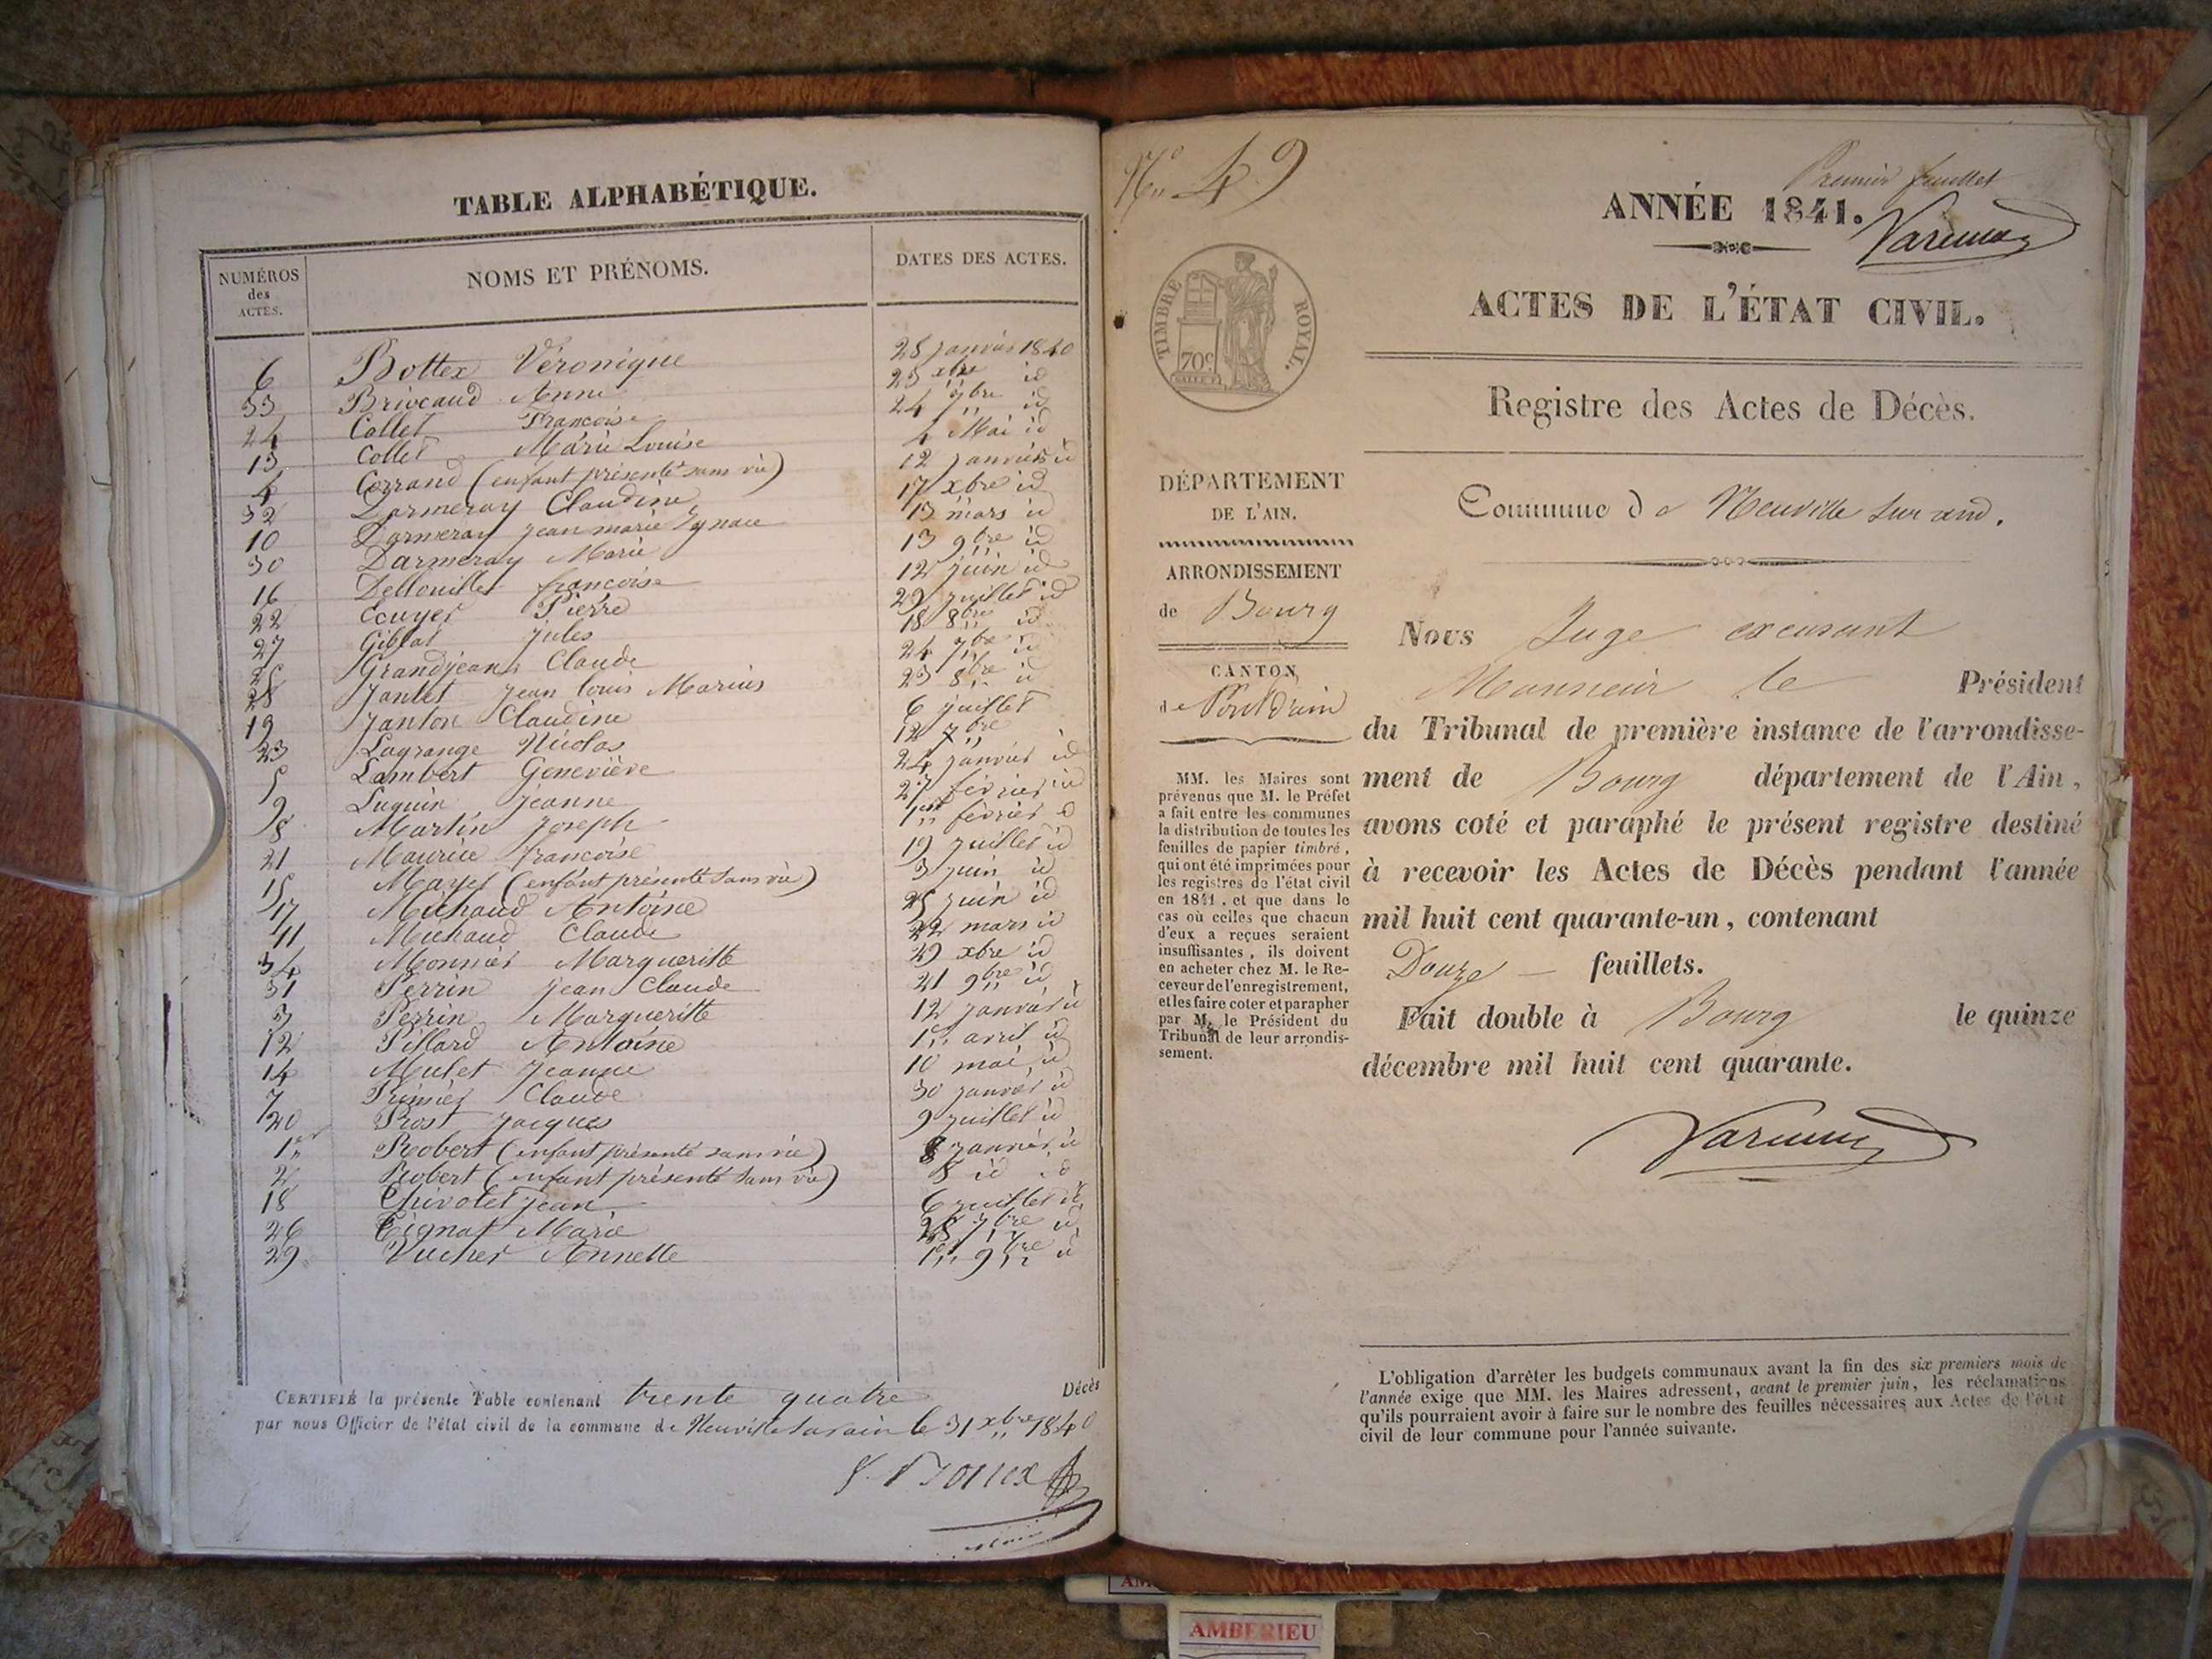 TABLE ALPHABÉTIQUE.
NUMÉROS des ACTES. NOMS ET PRÉNOMS. DATES DES ACTES.
6 Bottex Véronique 28 janvier 1840
33 Brivcaud Anne 23 xbre id
24 Collet Françoise 24 7bre id
13 Collet Marie Louise 4 Mai id
4 Corrand (enfant présenté sans vie) 12 janvier id
32 Darmeray Claudine 17 xbre id
10 Darmeray jean marie Ignace 13 mars id
30 Darmeray Marie 13 9bre id
16 Dellouilles françoise 12 juin id
22 Ecuyer Pierre 29 juillet id
27 Giblat jules 18 8bre id
25 Grandjean Claude 24 7bre id
28 Jantet jean louis Marius 23 8bre id
19 Janton Claudine 6 juillet
23 Lagrange Nicolas 12 7bre
5 Lambert Geneviève 24 janvier id
9 Luquin jeanne 27 février id
8 Martin joseph 1er février d
21 Maurice françoise 19 juillet id
15 Mayet (enfant présenté sans vie) 3 juin id
17 Michaud Antoine 25 juin id
11 Michaud Claude 22 mars id
34 Monnier Margueritte 29 xbre id
31 Perrin jean Claude 21 9bre id
3 Perrin Margueritte 12 janvier id
12 Pillard Antoine 1er avril id
14 Mulet Jeanne 10 mai id
7 Prémier Claude 30 janvier id
20 Prost jacques 9 juillet id
1er Robert (enfant présenté sans vie) 8 janvier id
2 Robert (enfant présenté sans vie) 8 id id
18 Chivolet jean 6 juillet id
26 Tignat Marie 28 7bre id
29 Vucher Annette 1er 9bre id
CERTIFIÉ la présente Table contenant trente quatre Décès
par nous Officier de l'état civil de la commune de Neuville sur ain le 31 xbre 1840
No 49
Premier feuillet
ANNÉE 1841.
ACTES DE L'ÉTAT CIVIL.
TIMBRE ROYAL.
70c
Registre des Actes de Décès.
DÉPARTEMENT
DE L'AIN.
ARRONDISSEMENT
de Bourg
CANTON
de Pontdain
MM. les Maires sont
prévenus que M. le Préfet
a fait entre les communes
la distribution de toutes les
feuilles de papier timbré,
qui ont été imprimées pour
les registres de l'état civil
en 1841, et que dans le
cas où celles que chacun
d'eux a reçues seraient
insuffisantes, ils doivent
en acheter chez M. le Re-
ceveur de l'enregistrement,
et les faire coter et parapher
par M. le Président du
Tribunal de leur arrondis-
sement.
Commune de Neuville sur ain.
Nous Juge excusant
Monsieur le Président
du Tribunal de première instance de l'arrondisse-
ment de Bourg département de l'Ain,
avons coté et paraphé le présent registre destiné
à recevoir les Actes de Décès pendant l'année
mil huit cent quarante-un, contenant
Douze feuillets.
Fait double à Bourg le quinze
décembre mil huit cent quarante.
L'obligation d'arrêter les budgets communaux avant la fin des six premiers mois de
l'année exige que MM. les Maires adressent, avant le premier juin, les réclamations
qu'ils pourraient avoir à faire sur le nombre des feuilles nécessaires aux Actes de l'état
civil de leur commune pour l'année suivante.
AMBERIEU